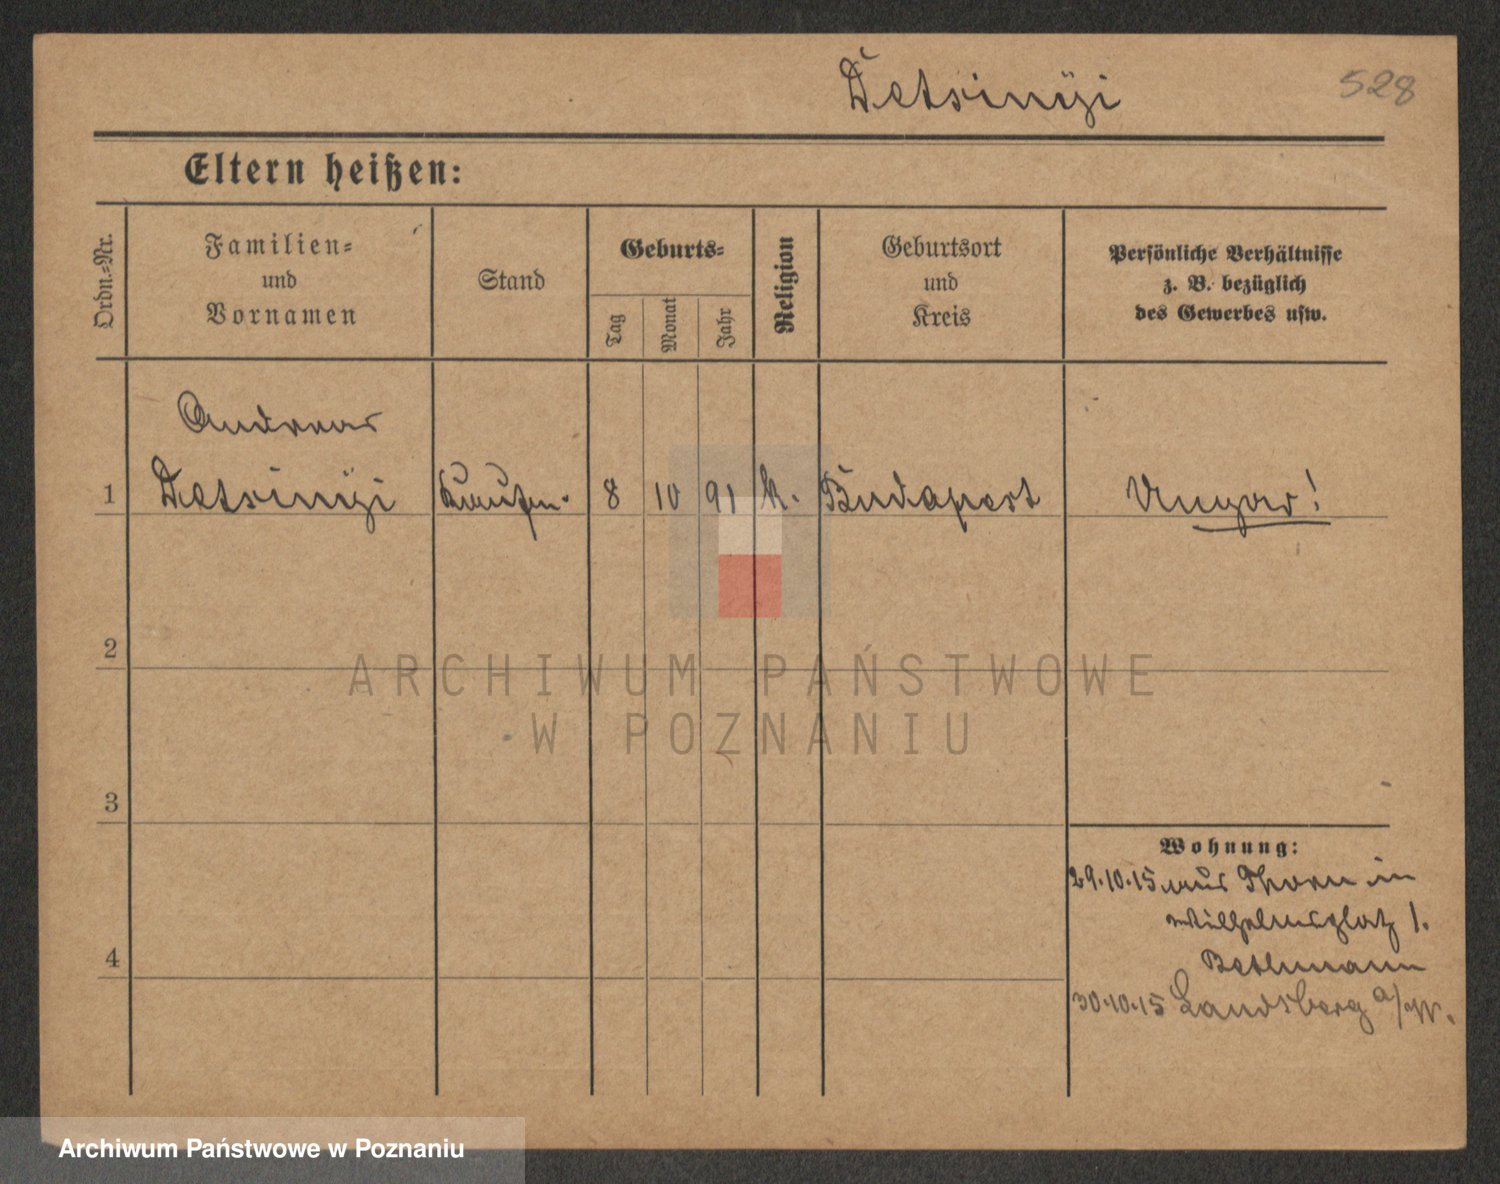 Detsinÿi
528
Eltern heißen:
Ordn.=Nr.
Familien=
und
Vornamen
Stand
Geburts=
Tag
Monat
Jahr
Religion
Geburtsort
und
Kreis
Persönliche Verhältnisse
z. B. bezüglich
des Gewerbes usw.
Andreas
1 Detsinÿi Kaufm. 8 10 91 k. Budapest Ungar!
2
ARCHIWUM PAŃSTWOWE
W POZNANIU
3
Wohnung:
29.10.15 aus Thorn in
Wilhelmsplatz 1.
Bethmann
4
30.10.15 Landsberg a/W.
Archiwum Państwowe w Poznaniu